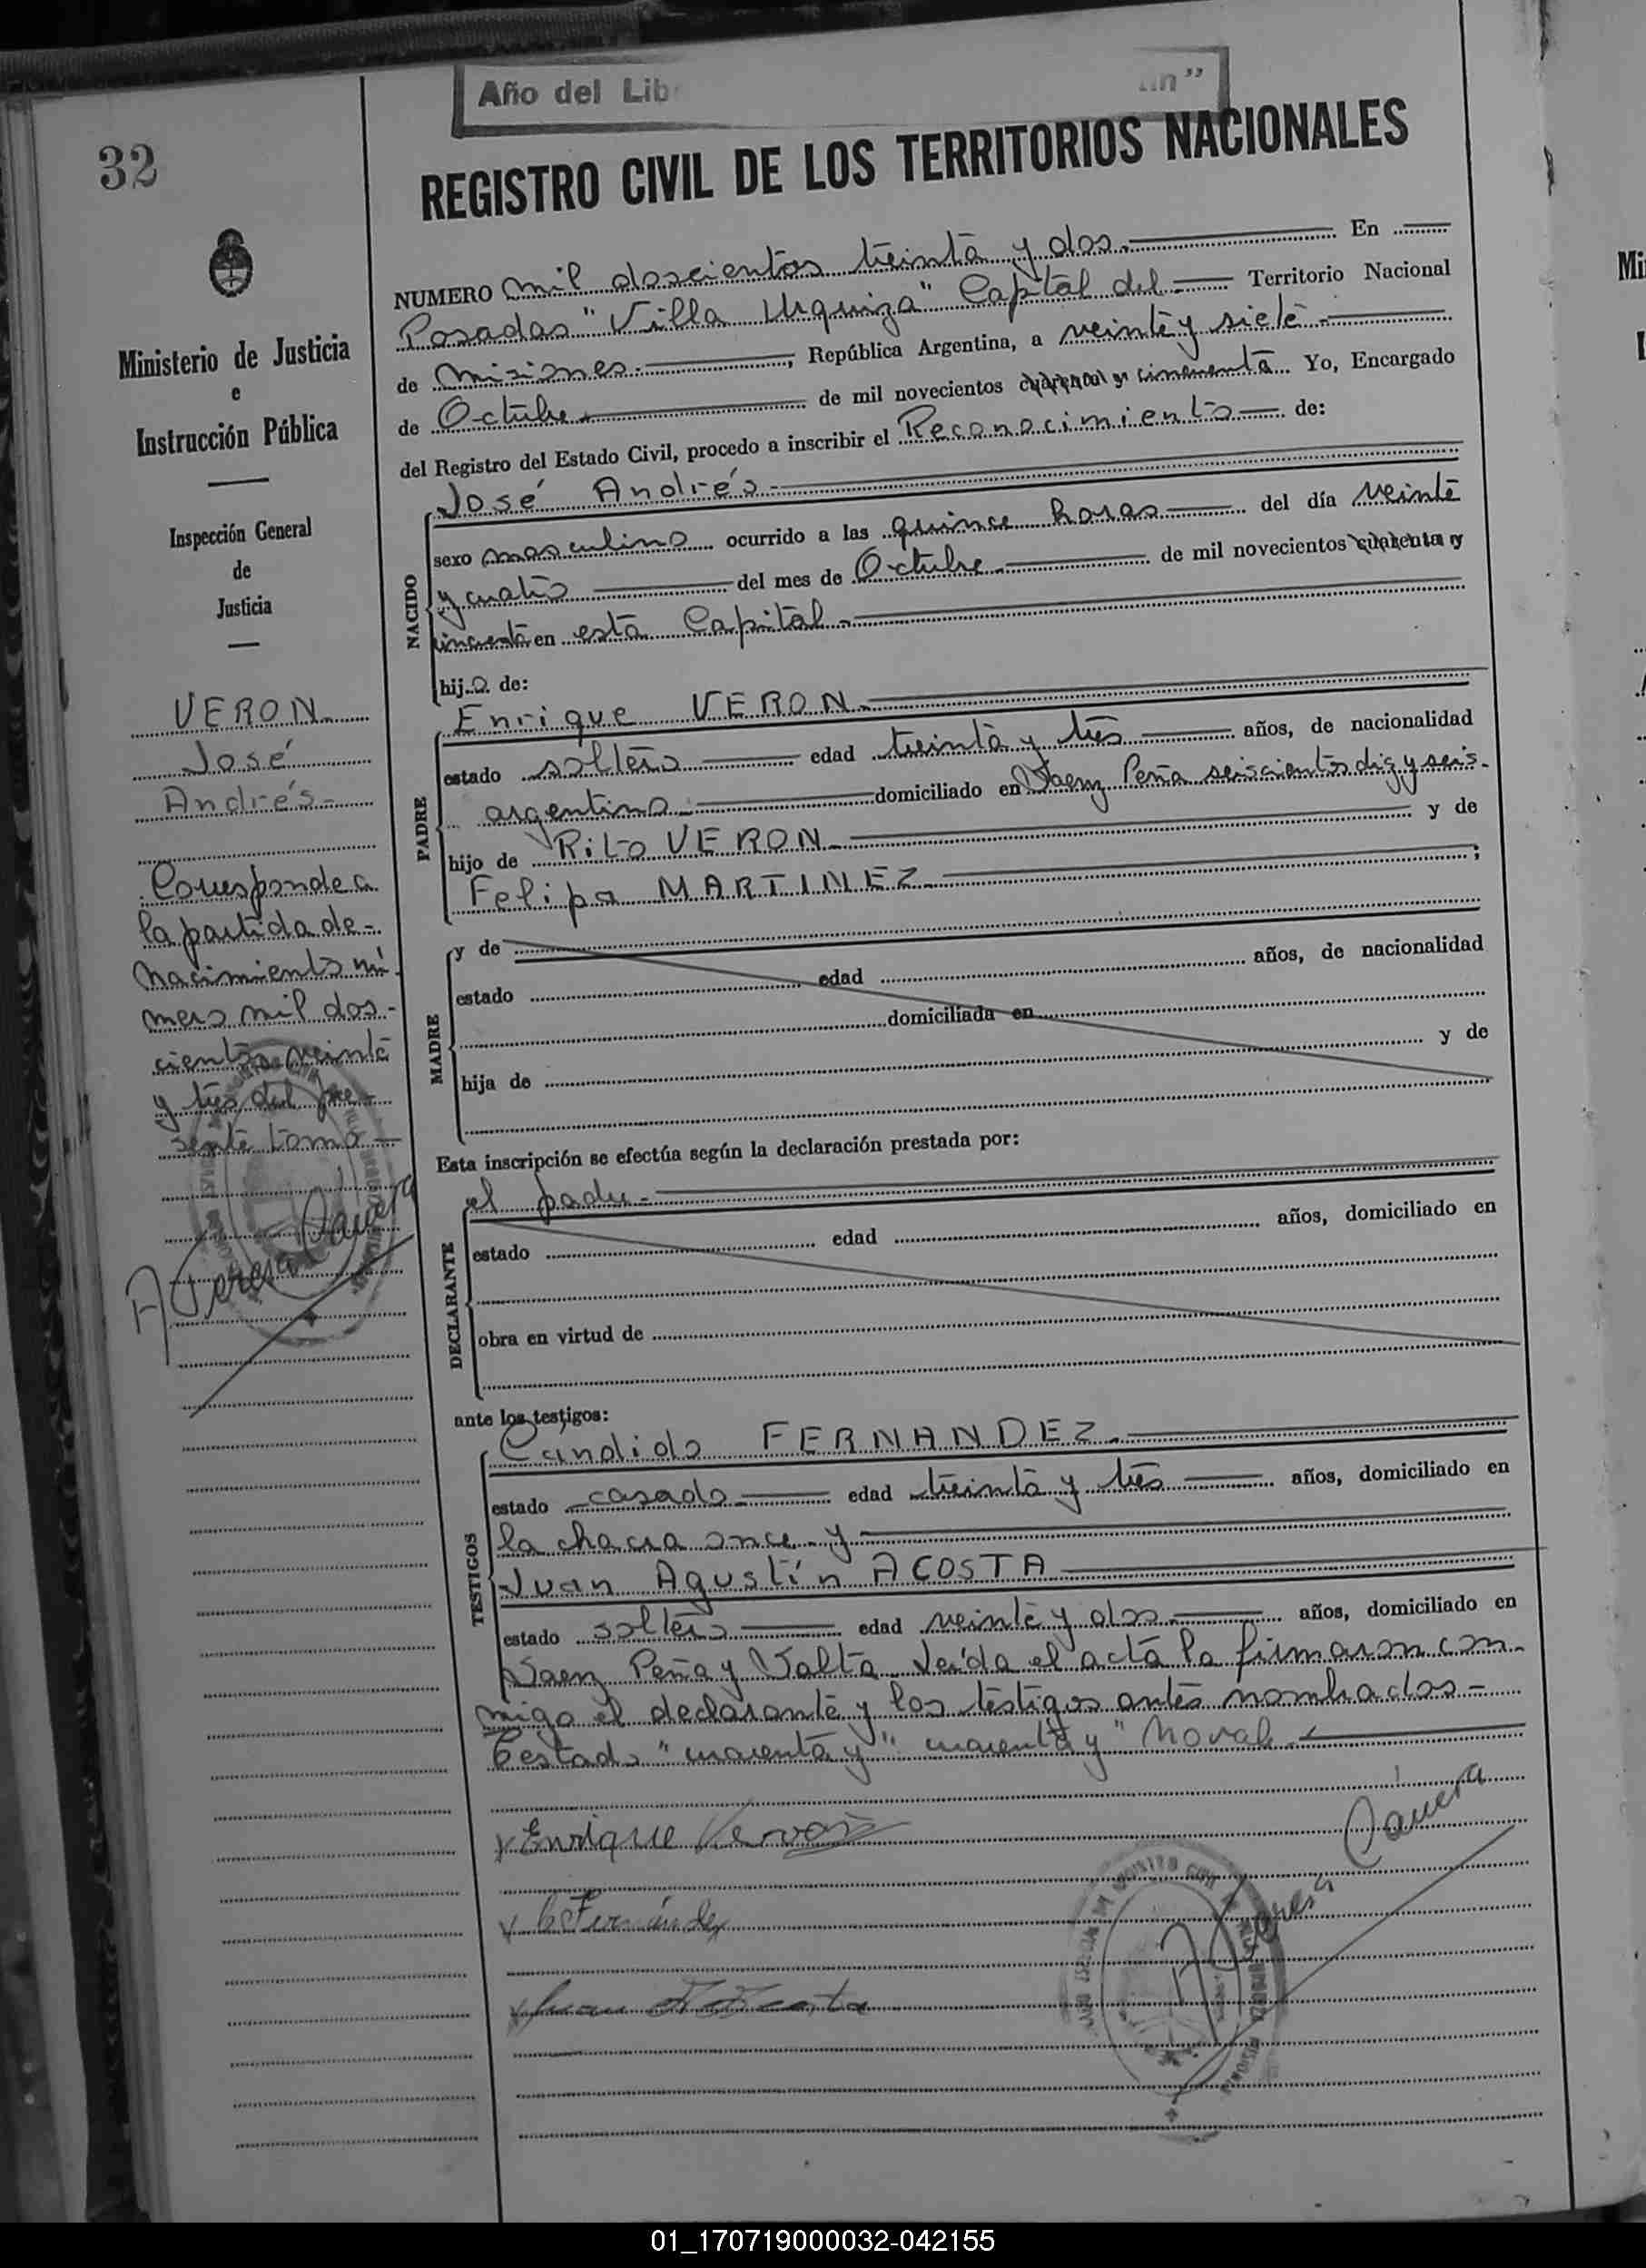 Año del Lib
in"
32
REGISTRO CIVIL DE LOS TERRITORIOS NACIONALES
NUMERO mil doscientos treinta y dos.- En
Posadas "Villa Urquiza" Capital del.- Territorio Nacional
de Misiones.-, República Argentina, a veinte y siete.-
de Octubre.- de mil novecientos cuarenta y cincuenta. Yo, Encargado
del Registro del Estado Civil, procedo a inscribir el Reconocimiento de:
NACIDO
José Andrés.-
sexo masculino ocurrido a las quince horas del día veinte
y cuatro del mes de Octubre.- de mil novecientos cuarenta y
cincuenta en esta Capital.-
hij.o. de:
PADRE
Enrique VERON.-
estado soltero edad treinta y tres años, de nacionalidad
argentino.- domiciliado en Saenz Peña seiscientos diez y seis.
hijo de Rito VERON.- y de
Felipa MARTINEZ.- ;
MADRE
y de
estado edad años, de nacionalidad
domiciliada en
hija de y de
Esta inscripción se efectúa según la declaración prestada por:
DECLARANTE
el padre.-
estado edad años, domiciliado en
obra en virtud de
ante los testigos:
TESTIGOS
Candido FERNANDEZ.-
estado casado.- edad treinta y tres años, domiciliado en
la chacra once.- y
Juan Agustín ACOSTA
estado soltero edad veinte y dos.- años, domiciliado en
Saenz Peña y Salta. Leída el acta la firmaron con-
migo el declarante y los testigos antes nombrados-
Testado "cuarenta y" "cuarenta y" No vale.-
Enrique Veron
C Fernández
Juan A Acosta
A Teresa Cavera
Ministerio de Justicia
e
Instrucción Pública
Inspección General
de
Justicia
VERON
José
Andrés.-
Corresponde a
la partida de-
nacimiento nú-
mero mil dos-
cientos veinte
y tres del pre-
sente tomo-
A Teresa Cavera
01_170719000032-042155